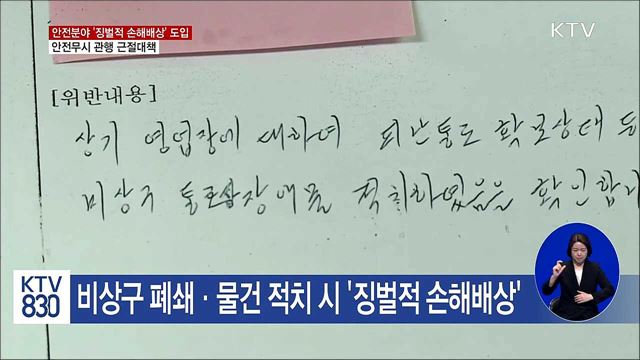 안전분야 '징벌적 손해배상' 도입
안전무시 관행 근절대책
KTV
[위반내용]
상기 영업장에 대하여 피난통로 확보상태 등
비상구 통로상 장애물 적치하였음을 확인합니
KTV 830
비상구 폐쇄·물건 적치 시 '징벌적 손해배상'